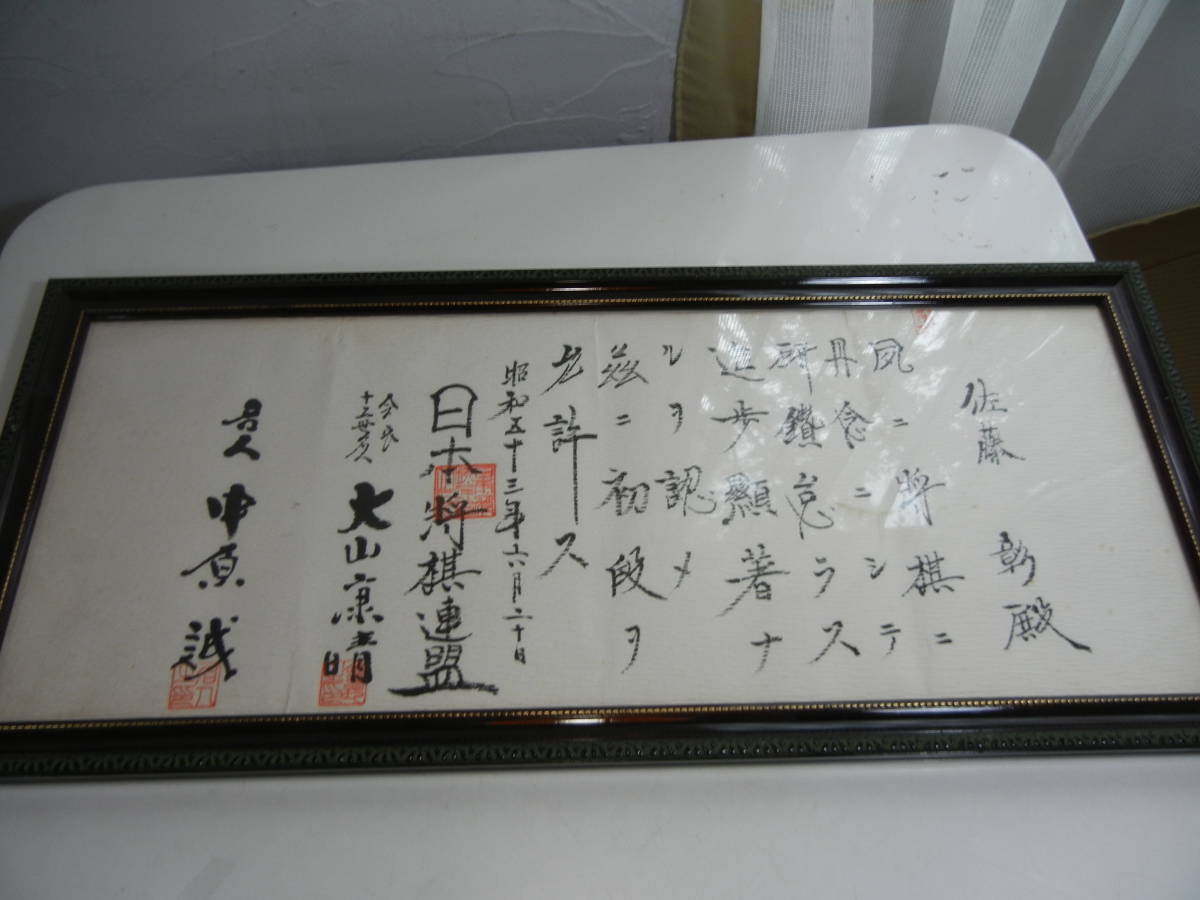 佐藤 彰殿
夙ニ將棋ニ
丹念ニシテ
研鑽怠ラス
進歩顯著ナ
ルヲ認メ
茲ニ初段ヲ
允許ス
昭和五十三年六月二十日
日本將棋連盟
会長
十五世名人
大山康晴
名人 中原誠